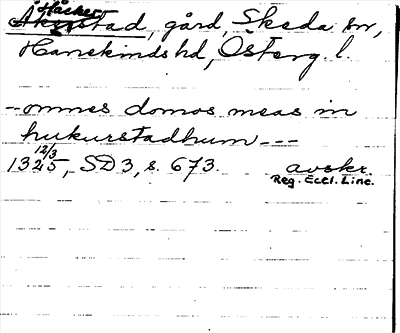 Håcker
Åkerstad, gård, Skeda sn,
Hanekinds hd, Österg. l.
-- omnes domos meas in
hukurstadhum ---
12/3
1325, SD 3, s. 673. avskr.
Reg. Eccl. Linc.